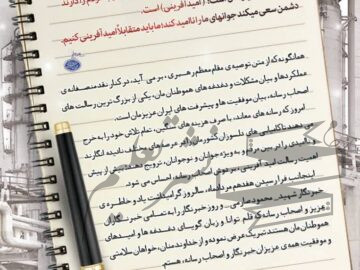 دشمن سعی میکند جوانهای ما را ناامید کند؛ ما باید متقابلاً امیدآفرینی کنیم.
همانگونه که از متن توصیه ی مقام معظم رهبری، بر می آید، در کنار نقد منصفانه ی
عملکردها و بیان مشکلات و دغدغه های هموطنان مان، یکی از بزرگ ترین رسالت های
اصحاب رسانه، بیان موفقیت ها و پیشرفت های ایران عزیزمان است.
امروز که رسانه های معاند، با صرف هزینه های سنگین، تمام تلاش خود را به خرج
اهمیت رسالت امیدآفرینی، بر دوش اصحاب رسانه، احساس می شود.
اینجانب فرا رسیدن هفدهم مردادماه، سالروز گرامیداشت یاد و خاطره ی
خبرنگار شهید، محمود صارمی و روز خبرنگار را به تمامی خبرنگاران
عزیز و اصحاب رسانه که قلم توانا و زبان گویای دغدغه ها و امیدهای
هموطنان مان هستند تبریک عرض نموده و از خداوند منان، خواهان سلامتی
و موفقیت همه ی عزیزان خبرنگار و اصحاب رسانه، هستم.